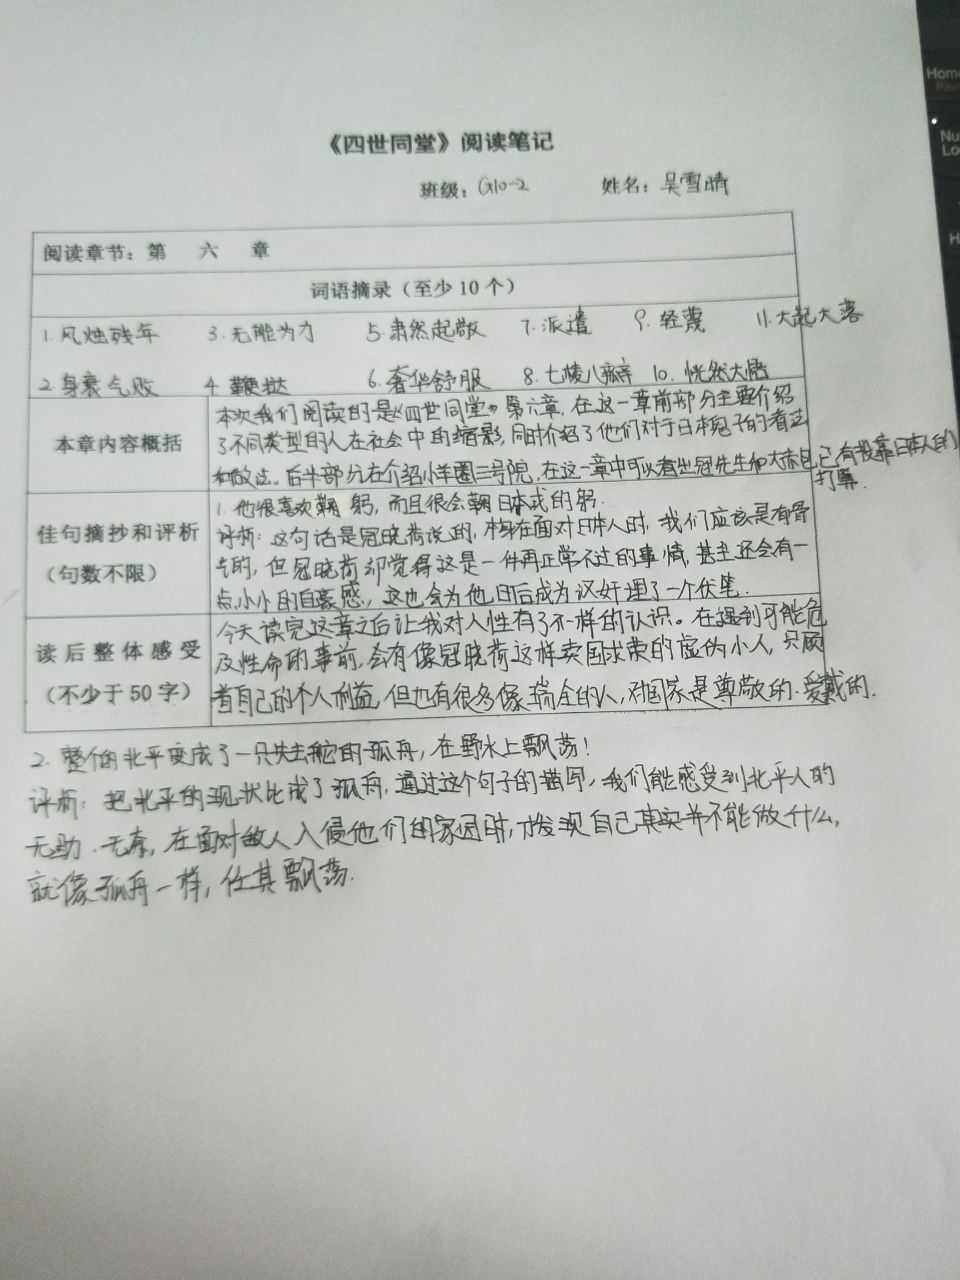 Home
Nu
Lo
H
《四世同堂》阅读笔记
班级：G10-2 姓名：吴雪晴
阅读章节：第 六 章
词语摘录（至少10个）
1.风烛残年 3.无能为力 5.肃然起敬 7.派遣 9.轻蔑 11.大起大落
2.身衰气败 4.鞭挞 6.奢华舒服 8.七棱八瓣 10.恍然大悟
本章内容概括
本次我们阅读的是《四世同堂》第六章，在这一章前部分主要介绍
了不同类型的人在社会中的缩影，同时介绍了他们对于日本鬼子的看法
和做法。后半部分在介绍小羊圈三号院，在这一章中可以看出冠先生和大赤包已有投靠日本人的
打算.
佳句摘抄和评析
（句数不限）
1.他很喜欢鞠躬，而且很会鞠日本式的躬.
评析：这句话是冠晓荷说的，本身在面对日本人时，我们应该是有骨
气的，但冠晓荷却觉得这是一件再正常不过的事情，甚至还会有一
点小小的自豪感，这也会为他日后成为汉奸埋了一个伏笔.
读后整体感受
（不少于50字）
今天读完这章之后让我对人性有了不一样的认识。在遇到可能危
及性命的事前，会有像冠晓荷这样卖国求荣的虚伪小人，只顾
着自己的个人利益，但也有很多像瑞全的人，对国家是尊敬的、爱戴的.
2.整个的北平变成了一只失去舵的孤舟，在野水上飘荡！
评析：把北平的现状比成了孤舟，通过这个句子的描写，我们能感受到北平人的
无助、无奈，在面对敌人入侵他们的家园时，才发现自己其实并不能做什么，
就像孤舟一样，任其飘荡.